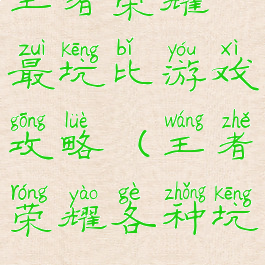 王者荣耀
zuì kēng bǐ yóu xì
最坑比游戏
gōng lüè wáng zhě
攻略(王者
róng yào gè zhǒng kēng
荣耀各种坑